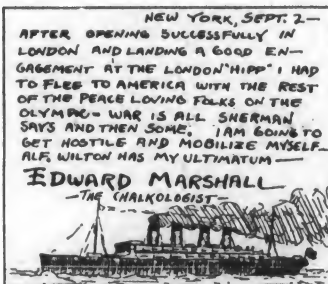 NEW YORK, SEPT. 2—
AFTER OPENING SUCCESSFULLY IN
LONDON AND LANDING A GOOD EN-
GAGEMENT AT THE LONDON "HIPP" I HAD
TO FLEE TO AMERICA WITH THE REST
OF THE PEACE LOVING FOLKS ON THE
OLYMPIC - WAR IS ALL SHERMAN
SAYS AND THEN SOME. I AM GOING TO
GET HOSTILE AND MOBILIZE MYSELF—
ALF. WILTON HAS MY ULTIMATUM—
EDWARD MARSHALL
—THE CHALKOLOGIST—